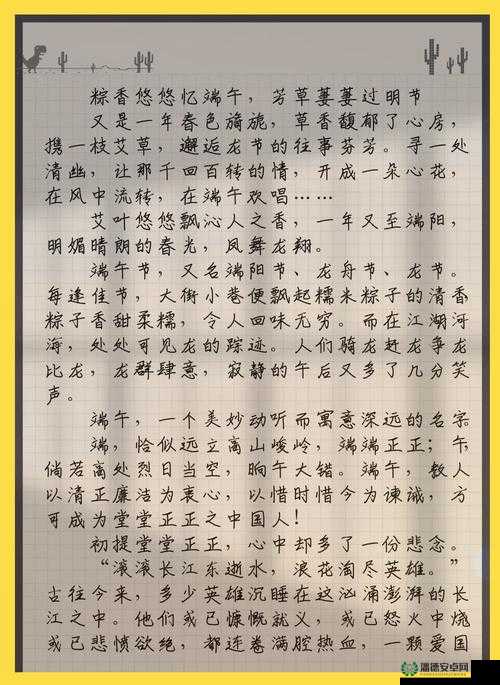 粽香悠悠忆端午，芳草萋萋过明节
又是一年春色旖旎，草香馥郁了心房，
携一枝艾草，邂逅龙节的往事芬芳。寻一处
清幽，让那千回百转的情，开成一朵心花，
在风中流转，在端午欢唱……
艾叶悠悠飘沁人之香，一年又至端阳，
明媚晴朗的春光，凤舞龙翔。
端午节，又名端阳节、龙舟节、龙节。
每逢佳节，大街小巷便飘起糯米粽子的清香
粽子香甜柔糯，令人回味无穷。而在江湖河
海，处处可见龙的踪迹。人们骑龙赶龙争龙
比龙，龙群肆意，寂静的午后又多了几分笑
声。
端午，一个美妙动听而寓意深远的名字
端，恰似远立高山峻岭，端端正正；午
倘若高处烈日当空，晌午大错。端午，教人
以清正廉洁为衷心，以惜时惜今为谏诫，方
可成为堂堂正正之中国人！
初提堂堂正正，心中却多了一份悲念。
“滚滚长江东逝水，浪花淘尽英雄。”
古往今来，多少英雄沉睡在这汹涌澎湃的长
江之中。他们或已慷慨就义，或已怒火中烧
或已悲愤欲绝，都连卷满腔热血，一颗爱国
潘德安卓网